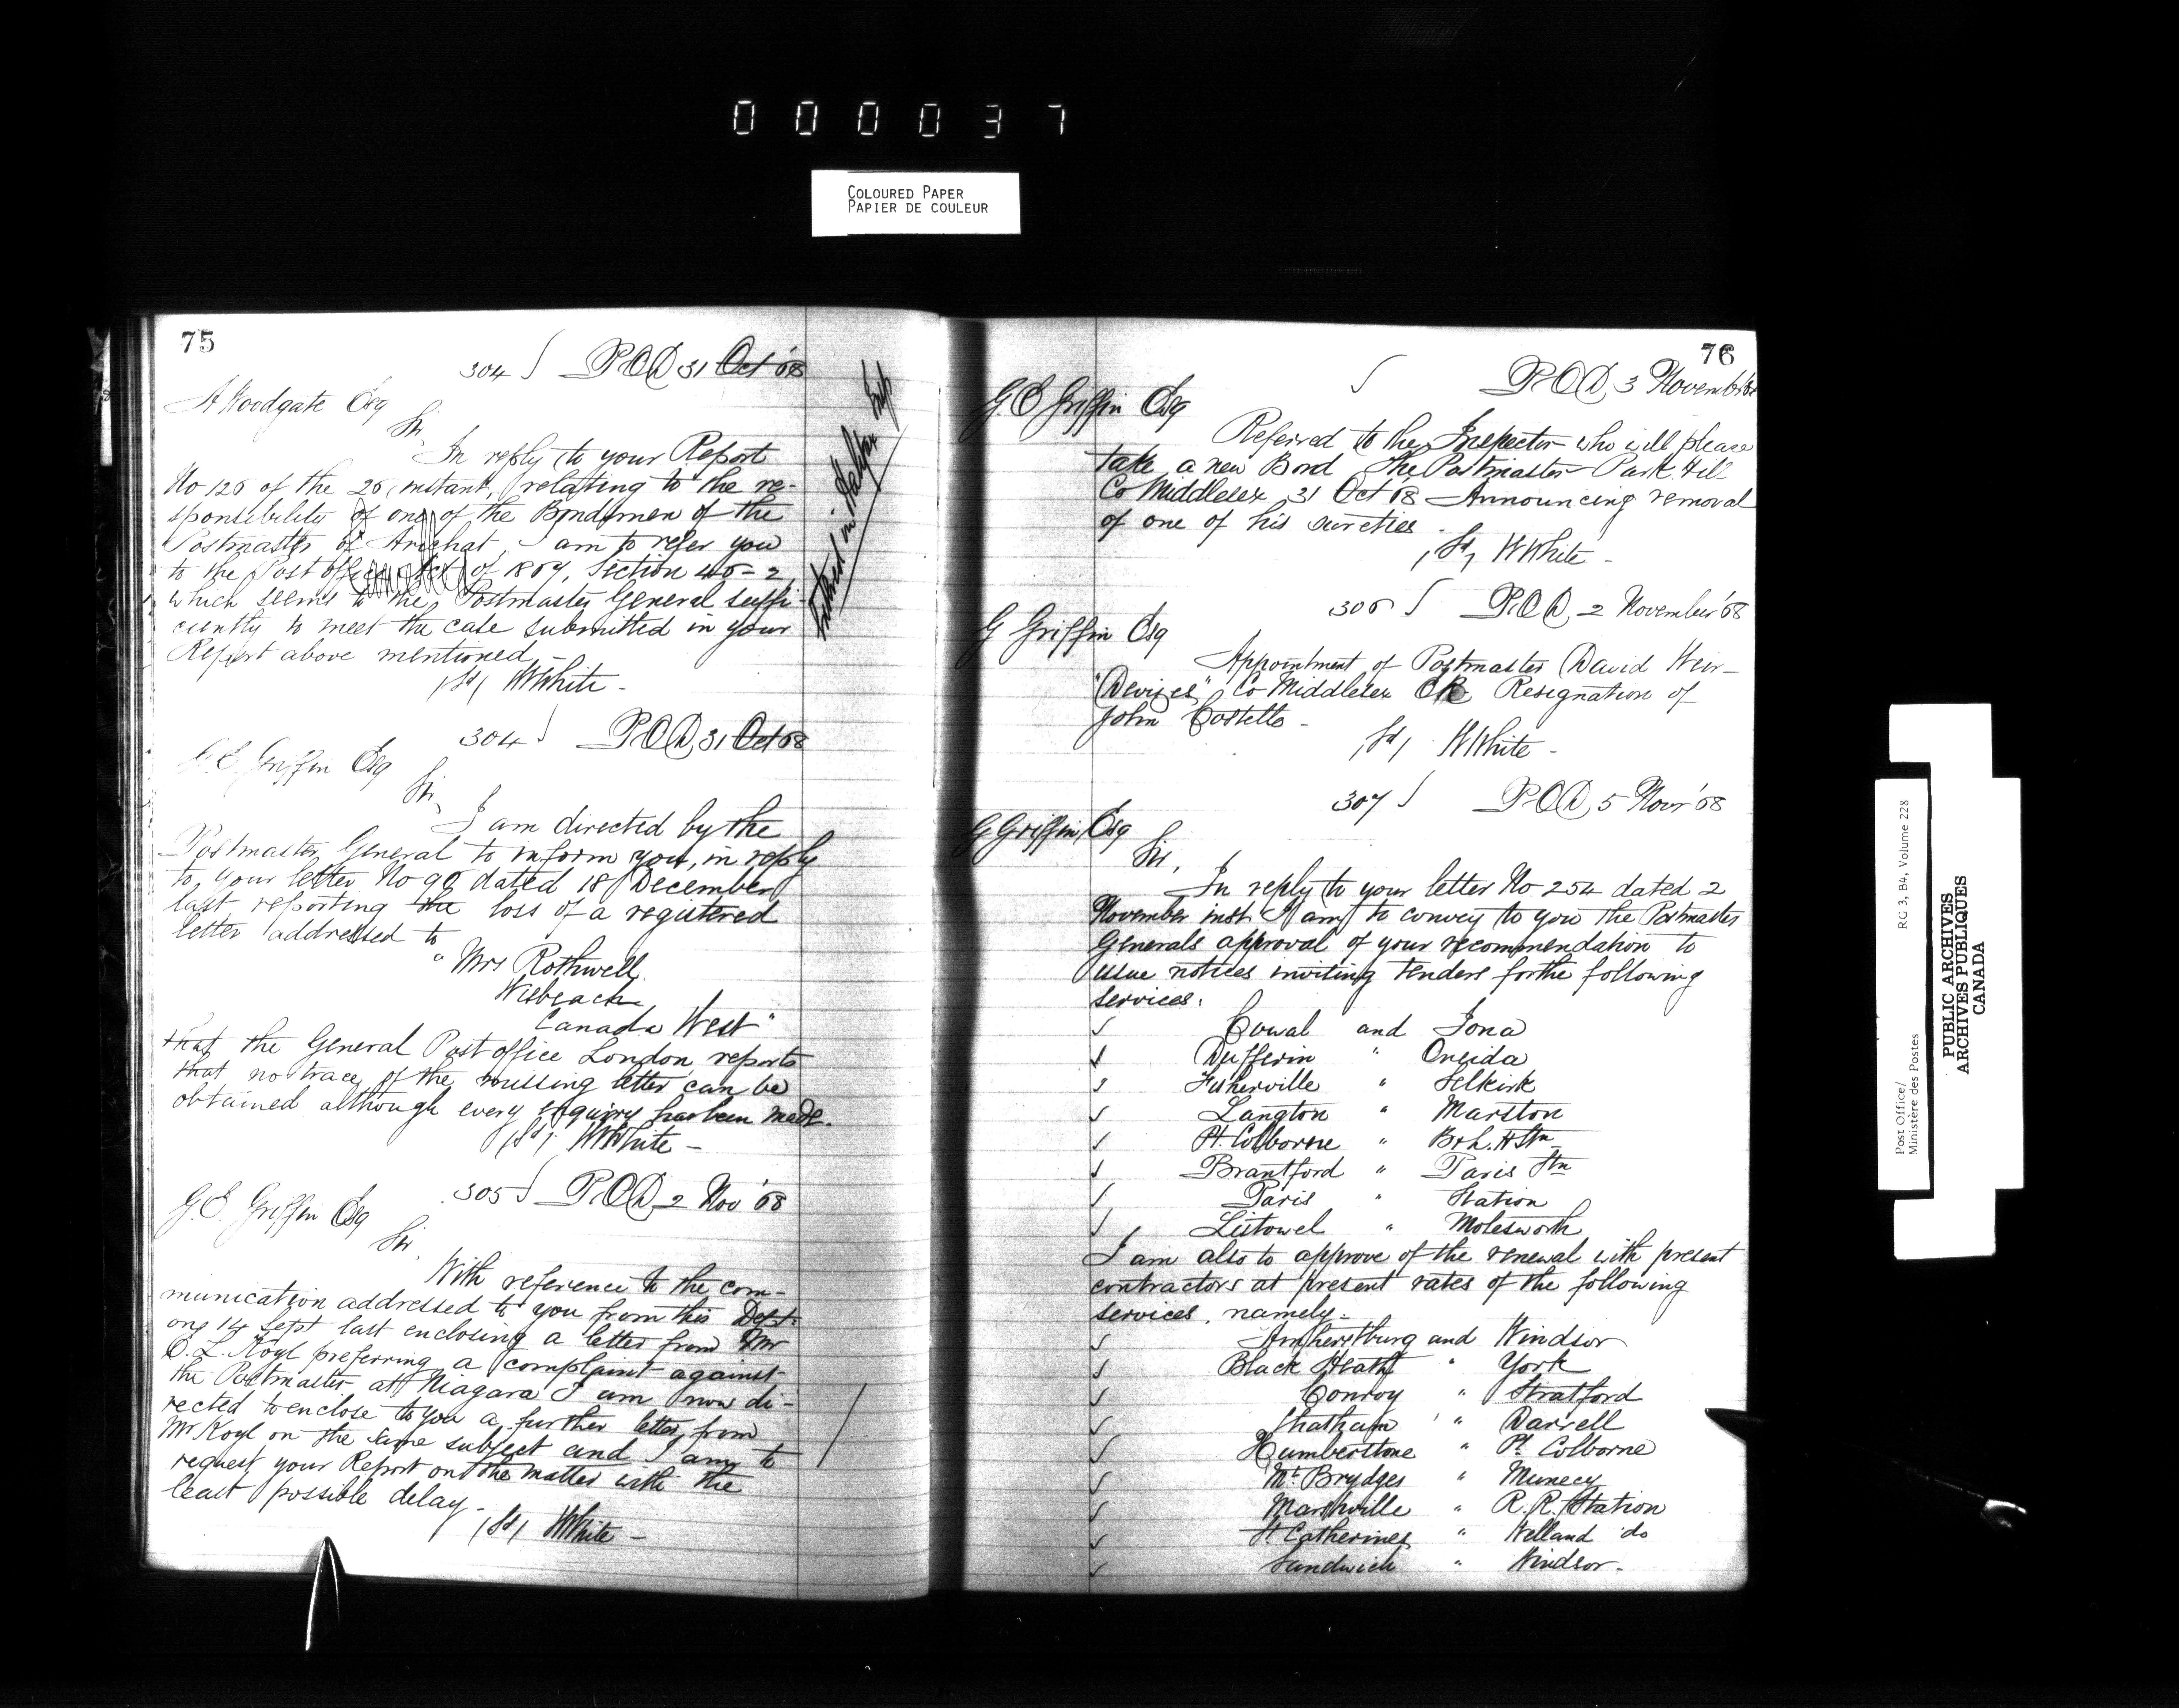 0 0 0 0 3 7
COLOURED PAPER
PAPIER DE COULEUR
75
304 P.O.D. 31 Oct '68
A Woodgate Esq
Sir,
In reply to your Report
No 126 of the 26 instant, relating to the re-
sponsibility of one of the Bondsmen of the
Postmaster of Arichat, I am to refer you
to the Post office Act of 1867, Section 46-2,
which seems to the Postmaster General suffi-
ciently to meet the case submitted in your
Report above mentioned -
(Sd) WWhite -
Entered in Halifax
304 P.O.D. 31 Oct 68
G.E. Griffin Esq
Sir,
I am directed by the
Postmaster General to inform you, in reply
to your letter No 96 dated 18 December
last reporting the loss of a registered
letter addressed to
"Mrs Rothwell
Wisbeach
Canada West"
that the General Post office London reports
that no trace of the missing letter can be
obtained although every enquiry has been made.
(Sd) WWhite -
305 P.O.D. 2 Nov '68
G.E. Griffin Esq
Sir,
With reference to the com-
munication addressed to you from this Dept.
on 14 Sept last enclosing a letter from Mr
O. L. Koyl preferring a complaint against
the Postmaster at Niagara I am now di-
rected to enclose to you a further letter from
Mr Koyl on the same subject and I am to
request your Report on the matter with the
least possible delay -
(Sd) WWhite -
76
P.O.D. 3 November 68
G.E Griffin Esq
Referred to the Inspector who will please
take a new Bond The Postmaster Park Hill
Co Middlesex 31 Oct 68 Announcing removal
of one of his sureties -
(Sd) WWhite -
306 P.O.D. 2 November '68
G Griffin Esq
Appointment of Postmaster David Weir -
"Devizes" Co Middlesex Resignation of
John Costello -
(Sd) WWhite -
307 P.O.D. 5 Novr '68
G Griffin Esq
Sir,
In reply to your letter No 254 dated 2
November inst. I am to convey to you the Postmaster
Generals approval of your recommendation to
issue notices inviting tenders for the following
services:
Cowal and Iona
Dufferin " Oneida
Fisherville " Selkirk
Langton " Marston
Pt. Colborne " B & L. H Stn
Brantford " Paris Stn
Paris " Station
Listowel " Molesworth
I am also to approve of the renewal with present
contractors at present rates of the following
services, namely -
Amherstburg and Windsor
Black Heath " York
Conroy " Stratford
Chatham " Darrell
Humberstone " Pt Colborne
Mt. Brydges " Muncey
Marshville " R. R. Station
St Catherines " Welland do
Sandwich " Windsor -
Post Office/ RG 3, B4, Volume 228
Ministère des Postes
PUBLIC ARCHIVES
ARCHIVES PUBLIQUES
CANADA